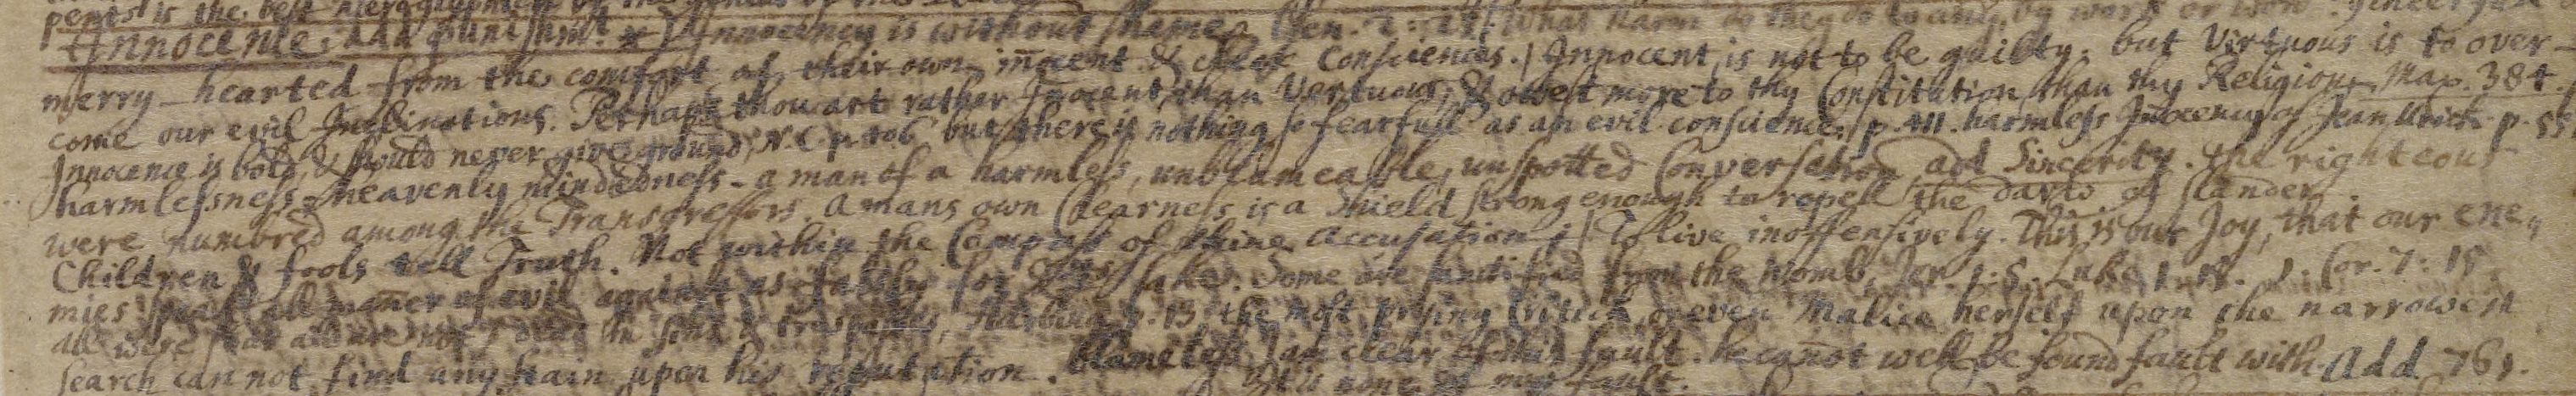 pents is the best
Innocence; add punishmt. Innocency is without shame, Gen. 2: 25. what harm do they do to any, by work or
merry-hearted from the comfort of their own iñocent & clear Consciences. / Innocent, is not to be guilty; but Virtuous is to over-
come our evil Inclinations. Perhaps thou art rather Iñocent than Vertuous, & owest more to thy Constitution, than thy Religion, Map. 384.
Innocence is bold, & should never give ground, N.C. p. 106 but there is nothing so fearfull as an evil conscience, p. 111. harmless Iñocency of Jean Urich p. 55
harmlessness, heavenly mindedness - a man of a harmless, unblameable, unspotted Conversation, add Sincerity. The righteous
were numbred among the Transgressors. A mans own Clearness is a Shield strong enough to repell the darts of slander.
Children & fools tell Truth. Not within the Compass of thine accusation; / To live inoffensively. This is our Joy, that our ene„
mies speak all mañer of evil against us falsly for sake. Some are sanctified from the womb, Jer. 1: 5. Luke 1. 15. 1. Cor. 7: 15
all were not dead in sins & trespasses, p. 13 the most prying Critick, or even Malice herself upon the narrowest
search can not find any stain upon his reputation. blameless, I am clear of this fault. he cañot well be found fault with. Add 761.
It is none of my fault.